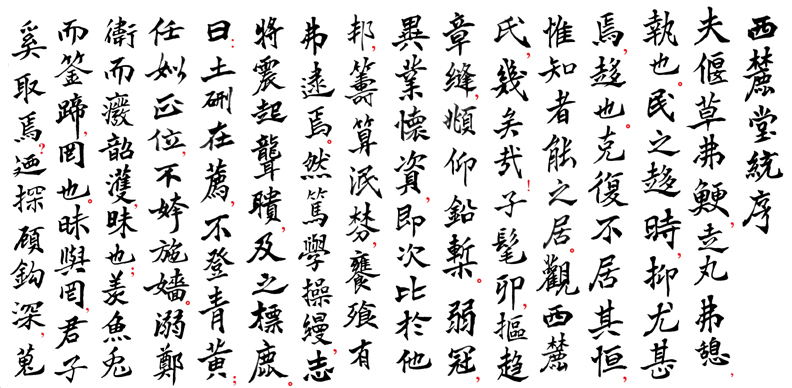 西麓堂統序
夫偃草弗鯁,走丸弗憩,
執也。民之趍時,抑尤甚
焉,趍也。克復不居其恒,
惟知者能之居。觀西麓
氏,幾矣哉!子髦丱,摳趨
章縫,頫仰鉛槧。弱冠,
異業懷資,即次比於他
邦,籌算泯棼,饔飧有
弗逮焉。然篤學操縵,志
將震起聾聵,及之標鹿。
曰:土硎在薦,不登青黃;
任姒正位,不姱施嬙。溺鄭
衛而癈韶濩,昧也;羡魚兎
而筌蹄,罔也。昧與罔,君子
奚取焉?迺探頋鈎深,蒐